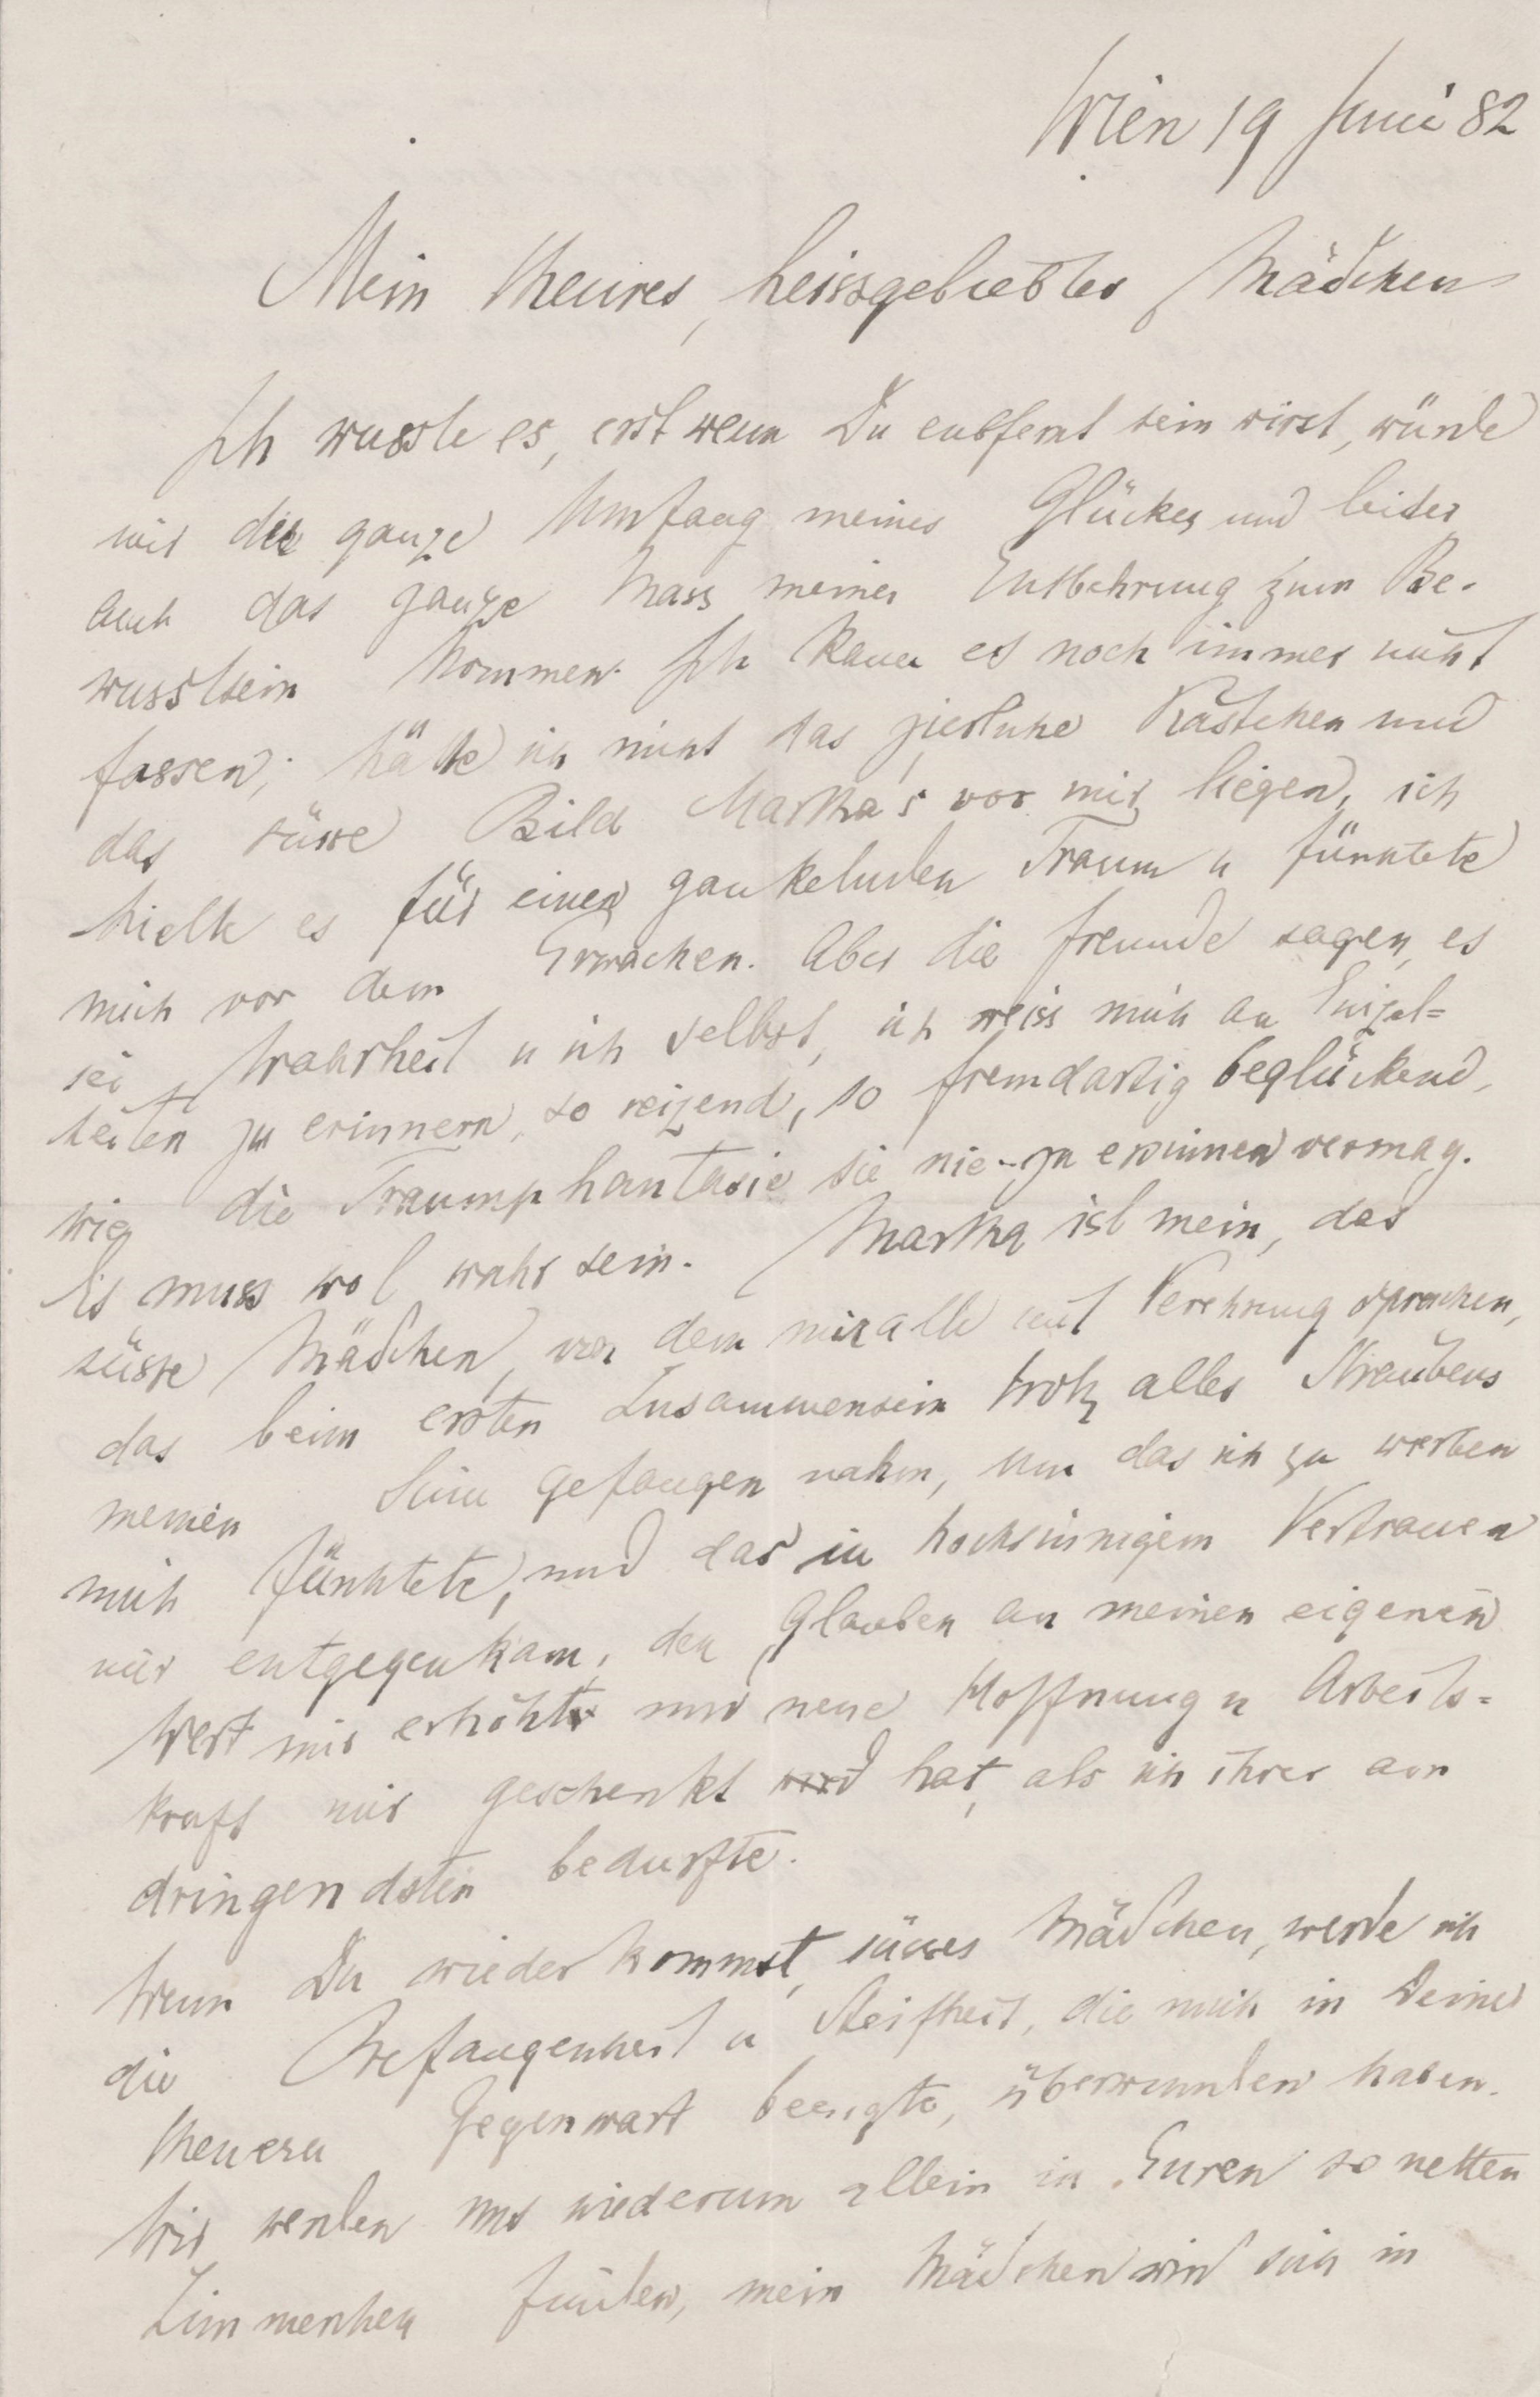 Wien 19 Juni 82
Mein theures, heissgeliebtes Mädchen
Ich wusste es, erst wenn Du entfernt sein wirst, würde
mir der ganze Umfang meines Glückes und leider
auch das ganze Mass meiner Entbehrung zum Be-
wusstsein kommen. Ich kann es noch immer nicht
fassen; hätte ich nicht das zierliche Kästchen und
das süsse Bild Martha's vor mir liegen, ich
hielte es für einen gaukelnden Traum u fürchtete
mich vor dem Erwachen. Aber die Freunde sagen, es
sei Wahrheit u ich selbst, ich weiss mich an Einzel=
heiten zu erinnern, so reizend, so fremdartig beglückend,
wie die Traumphantasie sie nie zu ersinnen vermag.
Es muss wol wahr sein. Martha ist mein, das
süsse Mädchen, von dem mir alle mit Verehrung sprachen,
das beim ersten Zusammensein trotz alles Sträubens
meinen Sinn gefangen nahm, um das ich zu werben
mich fürchtete, und das in hochsinnigem Vertrauen
mir entgegenkam, den Glauben an meinen eigenen
Wert mir erhöhte und neue Hoffnung u Arbeits=
kraft mir geschenkt hat, als ich ihrer am
dringendsten bedurfte.
Wenn Du wieder kommst, süsses Mädchen, werde ich
die Befangenheit u Steifheit, die mich in Deiner
theuern Gegenwart beengte, überwunden haben.
Wir werden uns wiederum allein in Euren so netten
Zimmerchen finden, mein Mädchen wird sich in